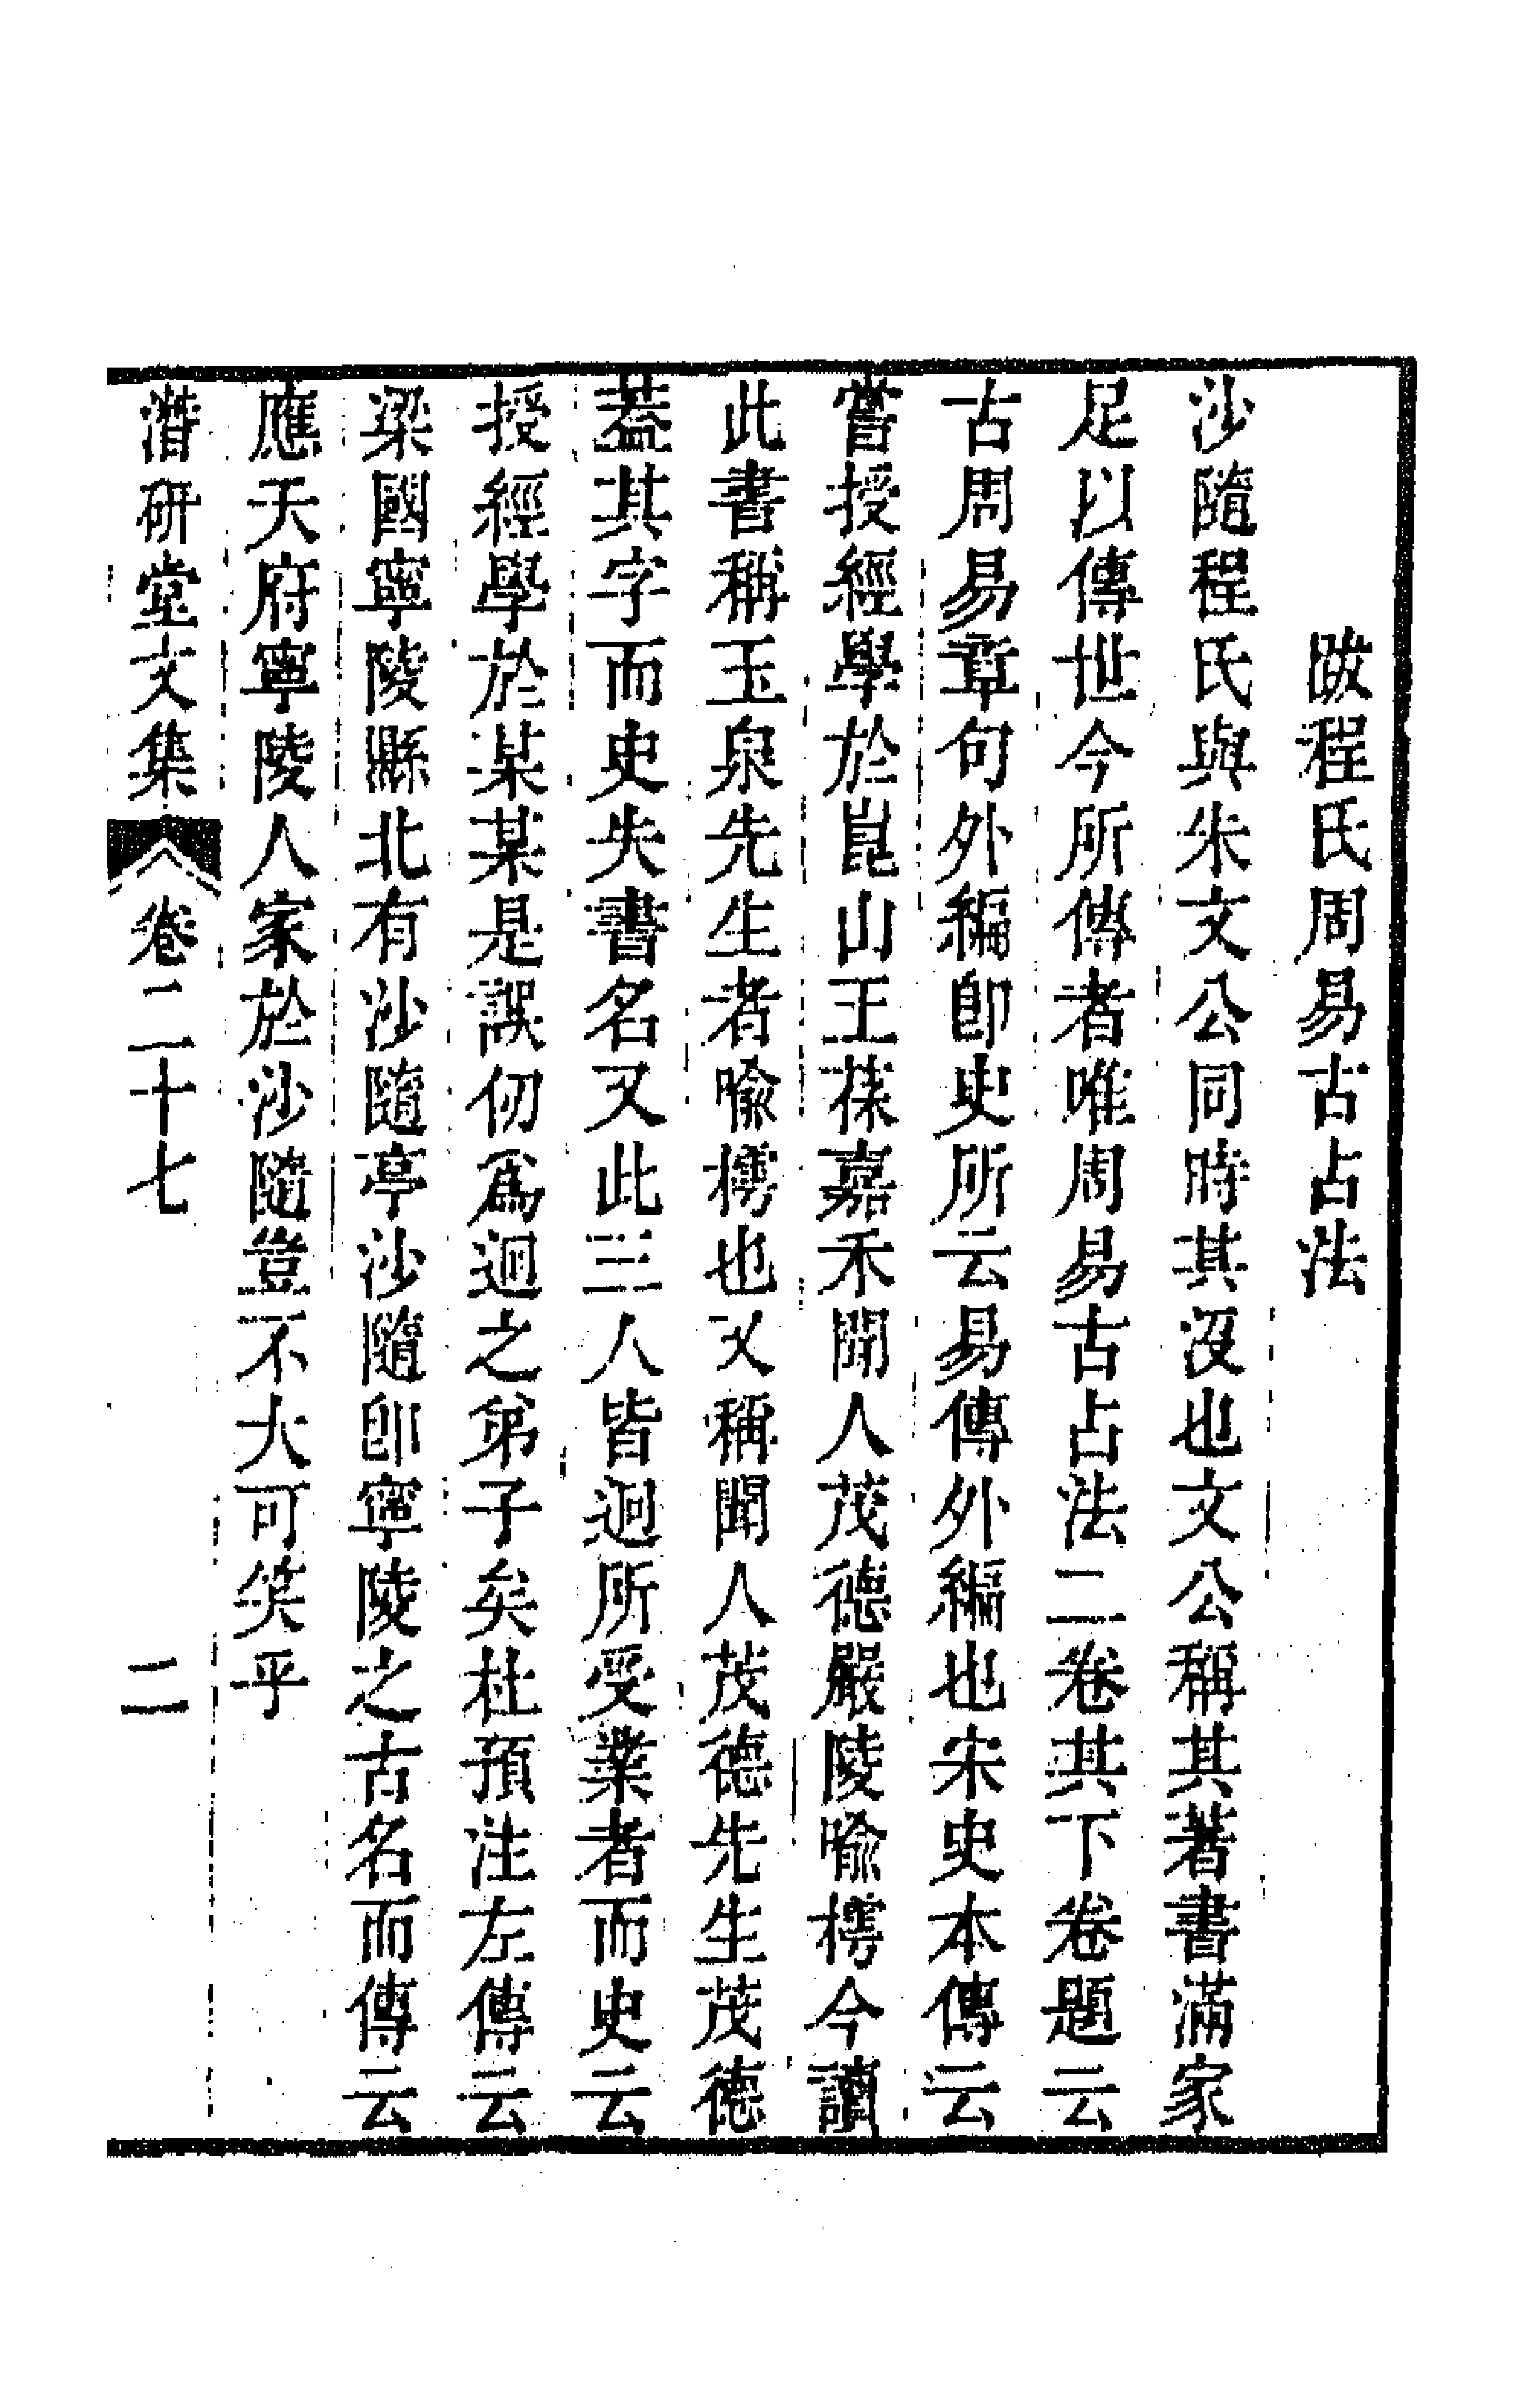 跋程氏周易古占法
沙隨程氏與朱文公同時其沒也文公稱其著書滿家
足以傳世今所傳者唯周易古占法二卷其下卷題云
古周易章句外編卽史所云易傳外編也宋史本傳云
嘗授經學於崑山王葆嘉禾聞人茂德嚴陵喻樗今讀
此書稱玉泉先生者喻樗也又稱聞人茂德先生茂德
葢其字而史失書名又此三人皆迥所受業者而史云
授經學於某某是誤仞爲迥之弟子矣杜預注左傳云
梁國寧陵縣北有沙隨亭沙隨卽寧陵之古名而傳云
應天府寧陵人家於沙隨豈不大可笑乎
潛研堂文集 卷二十七 二